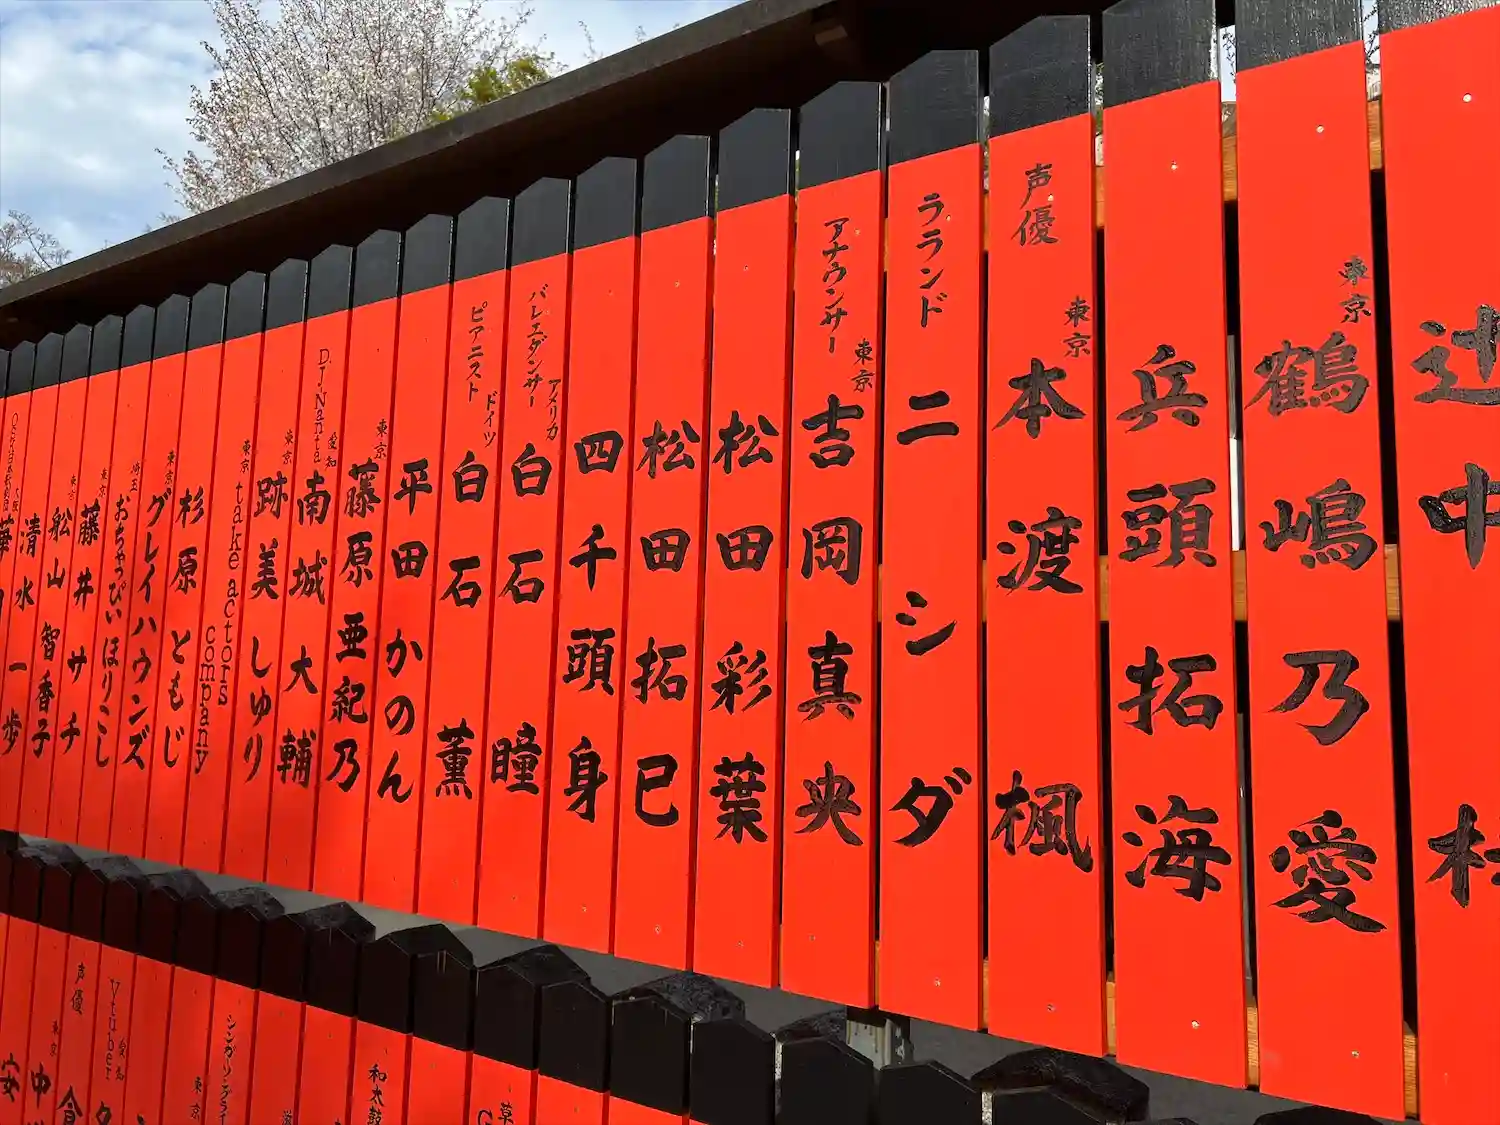 辻 中 杜
東京 鶴嶋乃愛
兵頭拓海
声優 東京 本渡楓
ラランド ニシダ
アナウンサー 東京 吉岡真央
松田彩葉
松田拓巳
四千頭身
バレエダンサー アメリカ 白石瞳
ピアニスト ドイツ 白石薫
平田かのん
東京 藤原亜紀乃
DJ Nanta 愛知 南城大輔
東京 跡美しゅり
東京 take actors company
杉原ともじ
東京 グレイハウンズ
埼玉 おちゃっぴい ほりこし
東京 藤井サチ
東京 舩山智香子
大阪 清水一歩
声優 東京
Vtuber 愛知
東京
シンガーソングライ
和太鼓